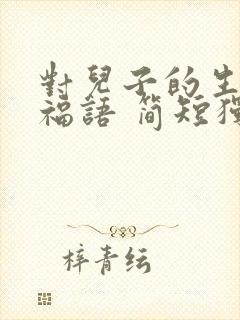 對兒子的生
福語 简短獨
梓青纭